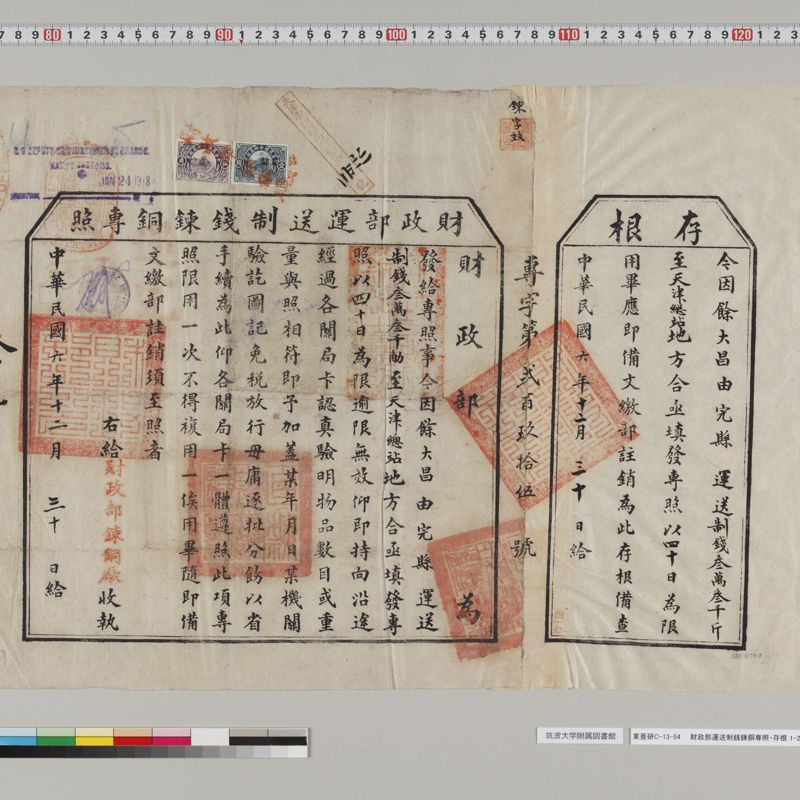 存根
令因餘大昌由完縣運送制錢叁萬叁千斤
至天津總站地方合亟填發專照以四十日為限
用畢應即備文繳部註銷為此存根備查
中華民國六年十二月三十日給
專字第貳百玖拾伍號
財政部運送制錢鍊銅專照
財政部為
發給專照事令因餘大昌由完縣運送
制錢叁萬叁千觔至天津總站地方合亟填發專
照以四十日為限逾限無效仰即持向沿途
經過各關局卡認真驗明物品數目或重
量與照相符即予加蓋某年月日某機關
驗訖圖記免稅放行毋庸逐批分飭以省
手續為此仰各關局卡一體遵照此項專
照限用一次不得複用一俟用畢隨即備
文繳部註銷須至照者
右給財政部鍊銅廠收執
中華民國六年十二月三十日給
JAN 24 1918
NATIVE CUSTOMS.
筑波大学附属図書館
東亜研C-13-54 財政部運送制銭鍊銅專照・存根 1-2